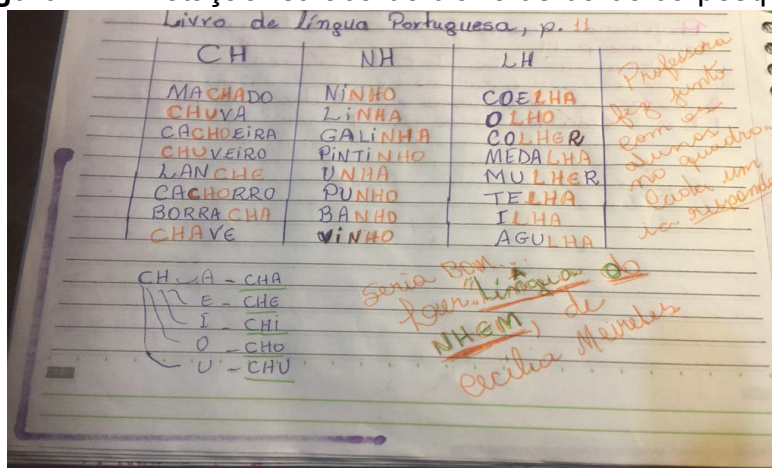 Livro de língua Portuguesa, p. 11
CH NH LH
MACHADO NINHO COELHA
CHUVA LINHA OLHO
CACHOEIRA GALINHA COLHER
CHUVEIRO PINTINHO MEDALHA
LANCHE UNHA MULHER
CACHORRO PUNHO TELHA
BORRACHA BANHO ILHA
CHAVE VINHO AGULHA
Professora
fez junto
com os
alunos
no quadro.
Cada um
ia responde
CH A - CHA
E - CHE
I - CHI
O - CHO
U - CHU
Seria Bom
A
"Língua do
NHEM", de
Cecília Meireles